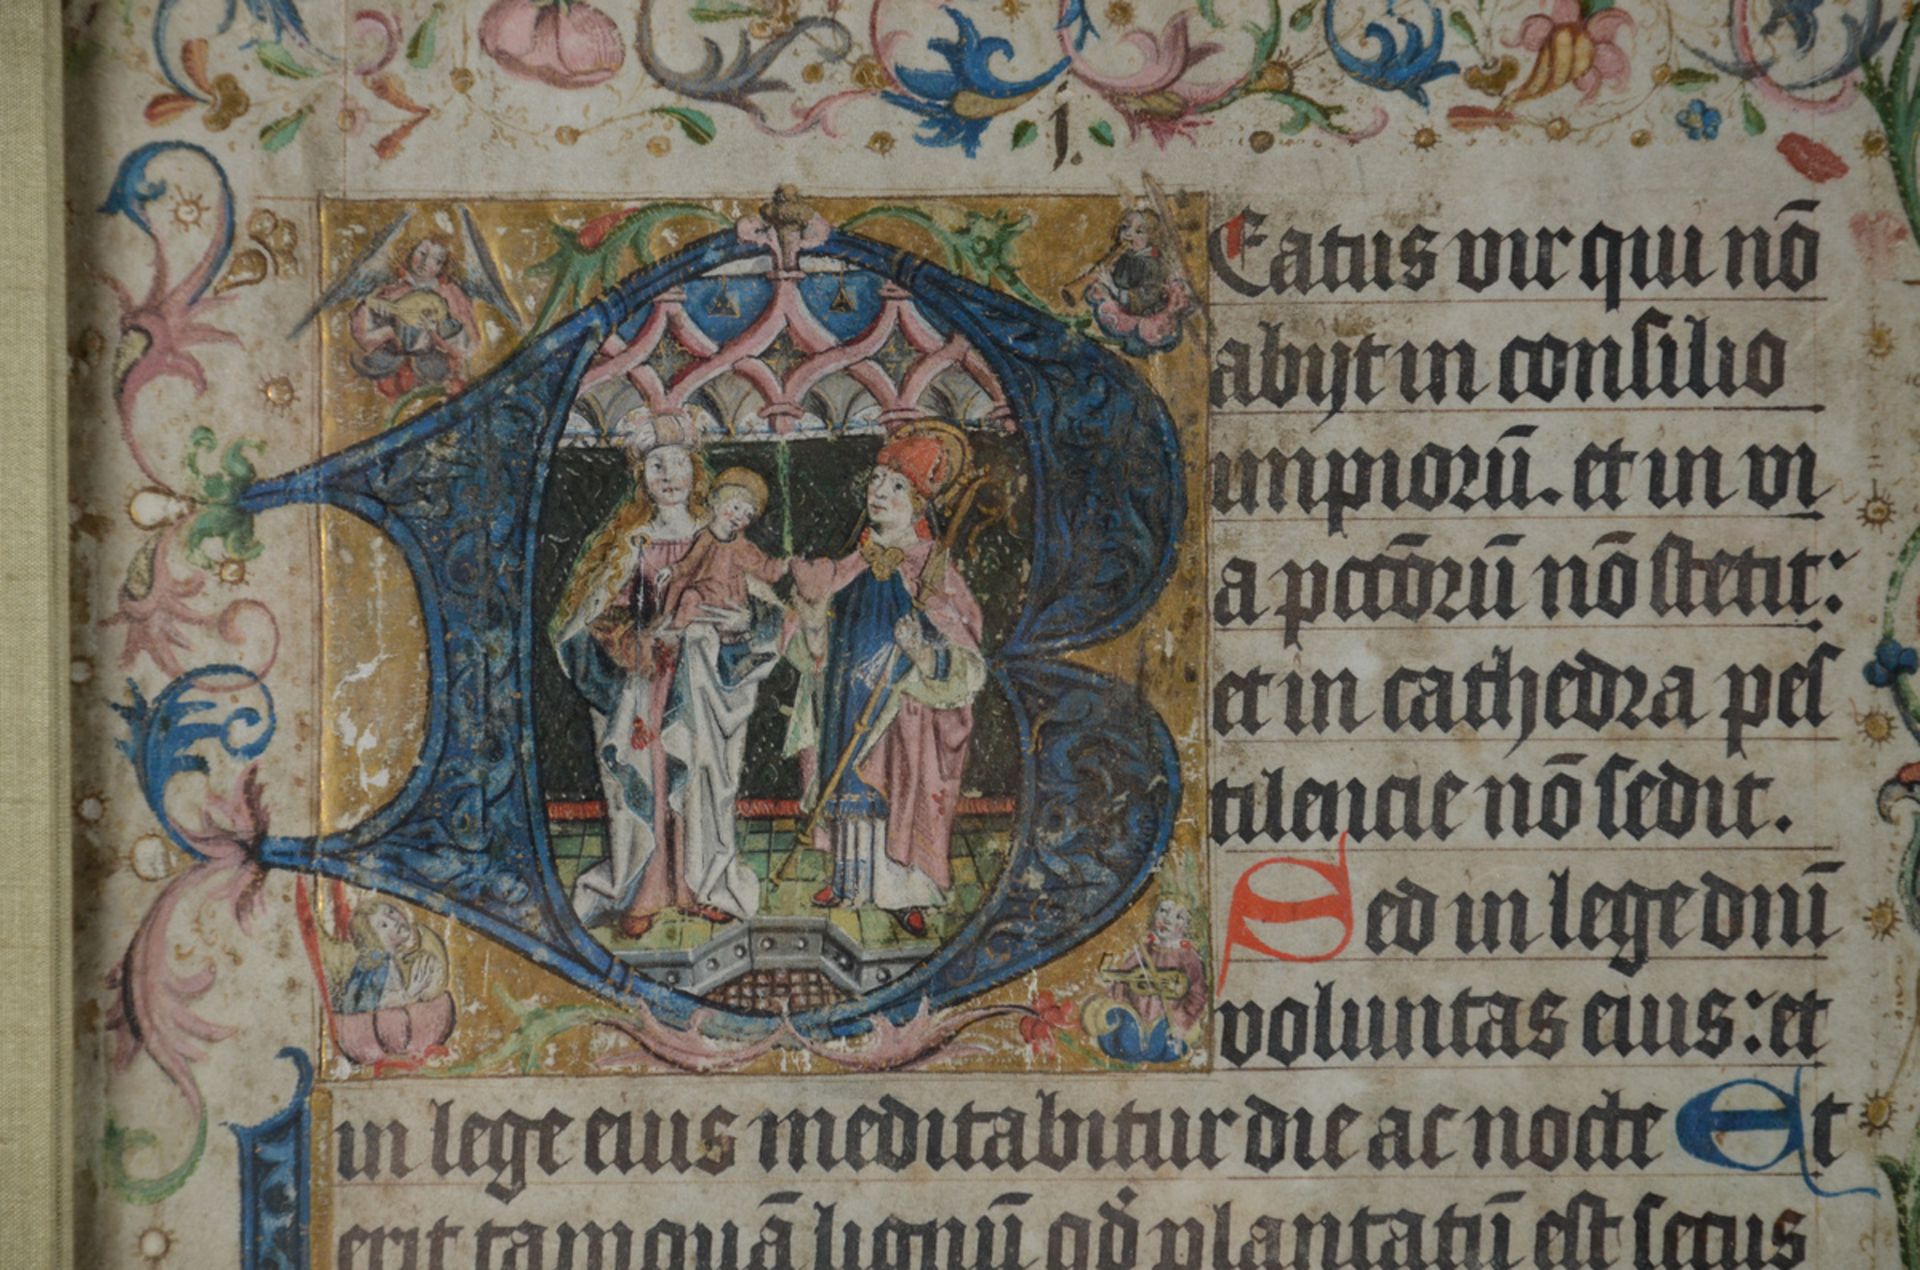 j.
Eatus vir qui nō
abijt in consilio
impiorū. et in vi
a pctōrū nō stetit:
et in cathedra pes
tilencie nō sedit.
Sed in lege dnī
voluntas eius: et
in lege eius meditabitur die ac nocte Et
erit tamquā lignū qd plantatū est secus